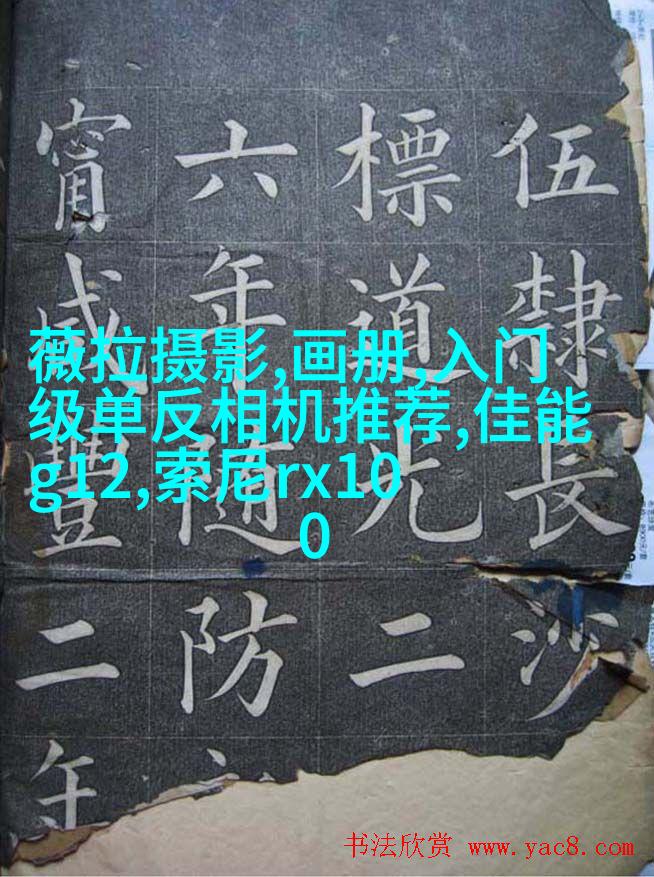 伍隸長沙
標道光二
六年隨防
甯咸豐二年
薇拉摄影,画册,入门
级单反相机推荐,佳能
g12,索尼rx10
0
书法欣赏 www.yac8.com